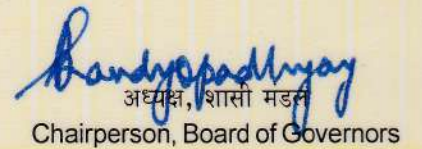 Bandyopadhyay
अध्यक्ष, शासी मंडल
Chairperson, Board of Governors